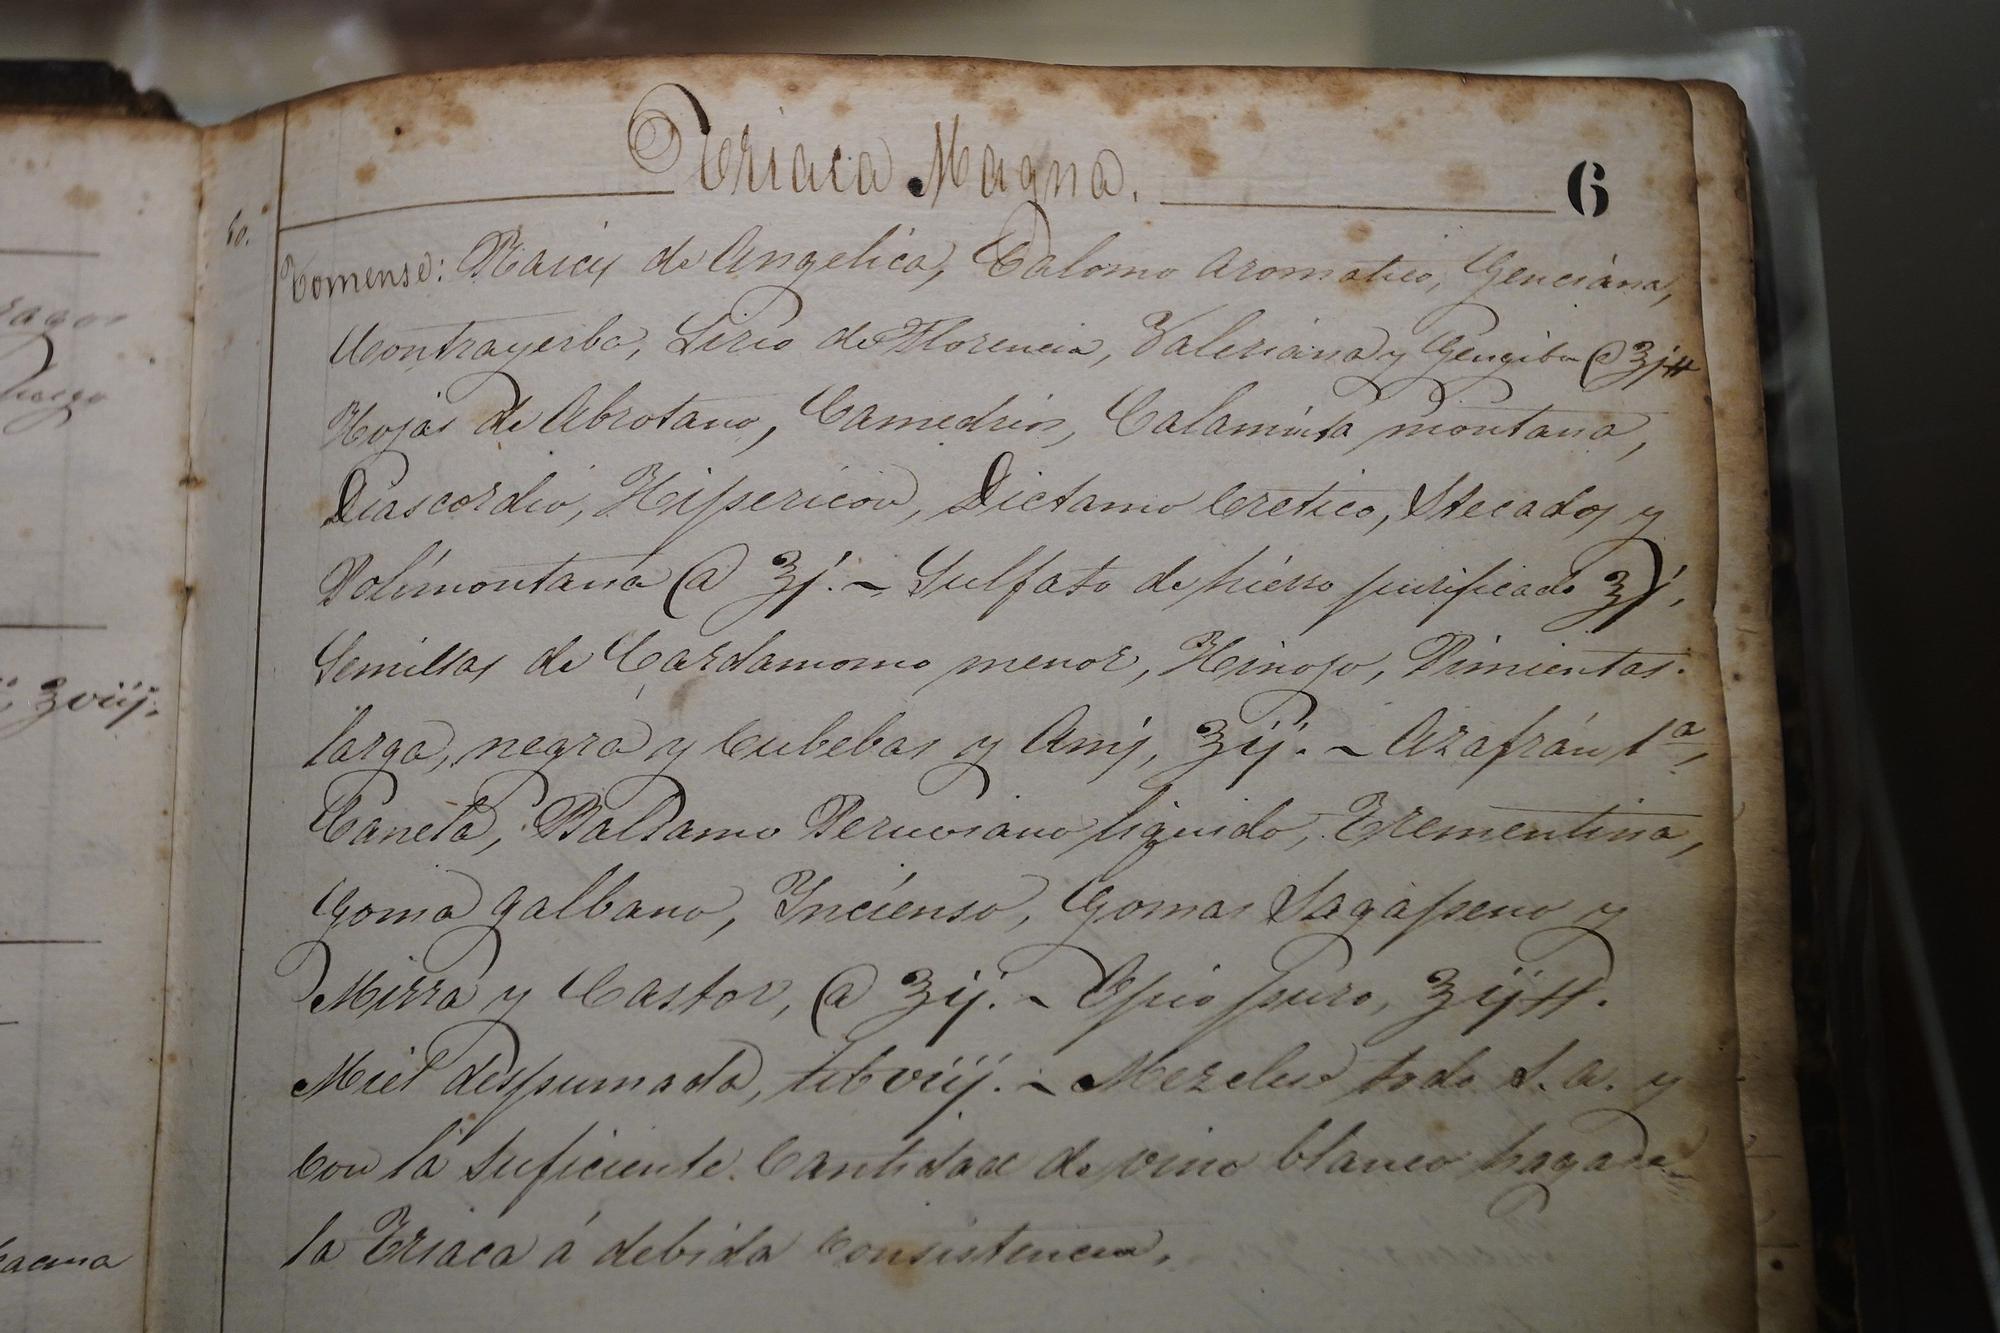 Triaca Magna.
6
60.
Tomense: Raices de Angelica, Calomo Aromatico, Genciána,
Contrayerba, Lirio de Florencia, Valeriana y Gengibre @ ʒjß
Hojas de Abrotano, Camedrios, Calaminta montana,
Diascordio, Hipericon, Dictamo Cretico, Stecados y
Polimontana @ ʒj. ~ Sulfato de hierro purificado ʒj.
Semillas de Cardamomo menor, Hinojo, Pimientas.
larga, negra y Cubebas y Anis, ʒij. ~ Azafrán 1ª,
Canela, Balsamo Peruviano liquido, Trementina,
Goma galbano, Incienso, Gomas Sagapeno y
Mirra y Castor, @ ʒij. ~ Opio puro, ʒijß.
Miel despumada, lib viij. ~ Mezclese todo S. A. y
con la suficiente Cantidad de vino blanco hagase
la Triaca á debida consistencia.
ragon
ʒviij.